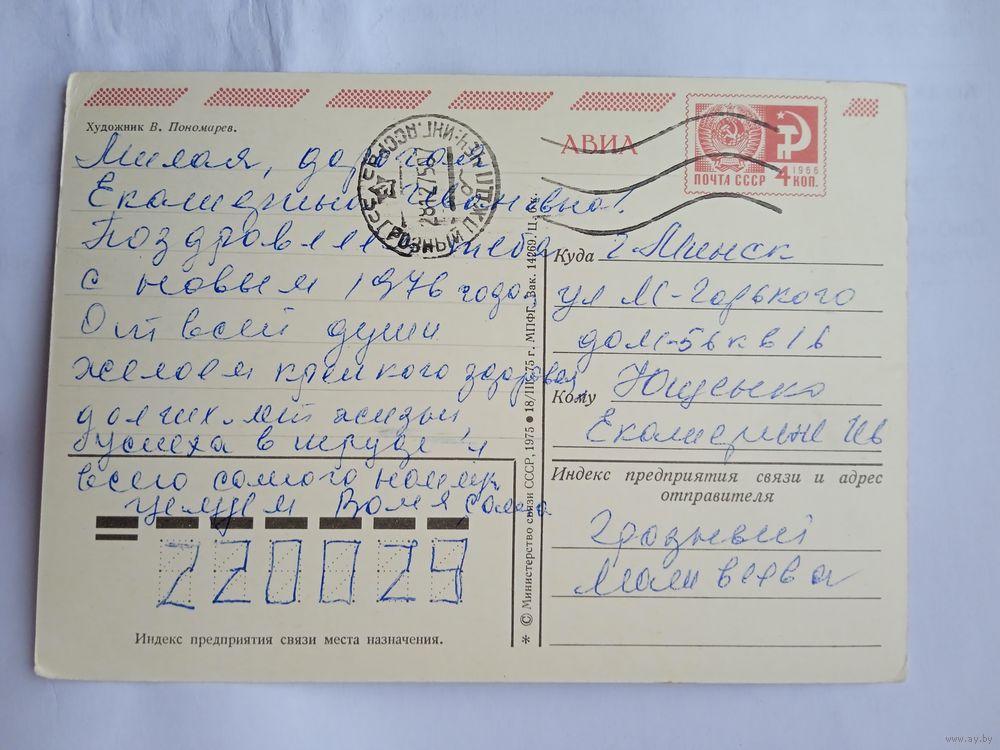 Художник В. Пономарев.
АВИА
ПОЧТА СССР
1966
4 КОП.
ГРОЗНЫЙ
Милая, дорогая
Екатерина Ивановна!
Поздравляем тебя
с новым 1976 годом
От всей души
желаем крепкого здоровья,
долгих лет жизни,
успеха в труде и
всего самого наил.
целуем Валя, Саша
Куда г. Минск
ул М-Горького
дом-56 кв 16
Кому Ющенко
Екатерине Ив
Индекс предприятия связи и адрес
отправителя
Грозный
220029
Индекс предприятия связи места назначения.
* © Министерство связи СССР, 1975 ● 18/III-75 г. МПФГ. Зак. 14269. Ц. 5 к.
www.ay.by